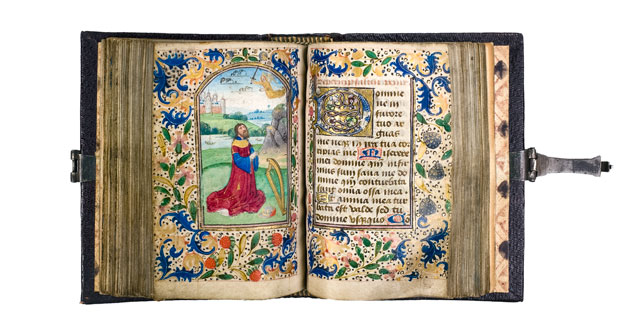 Domine
ne in
furore
tuo ar
guas
me neq in ira tua co
ripias me Miserere
mei domine qm infir
mus sum sana me do
mine qm conturbata
sunt omia ossa mea
Et anima mea tur
bata est valde sed tu
domine usquequo Co